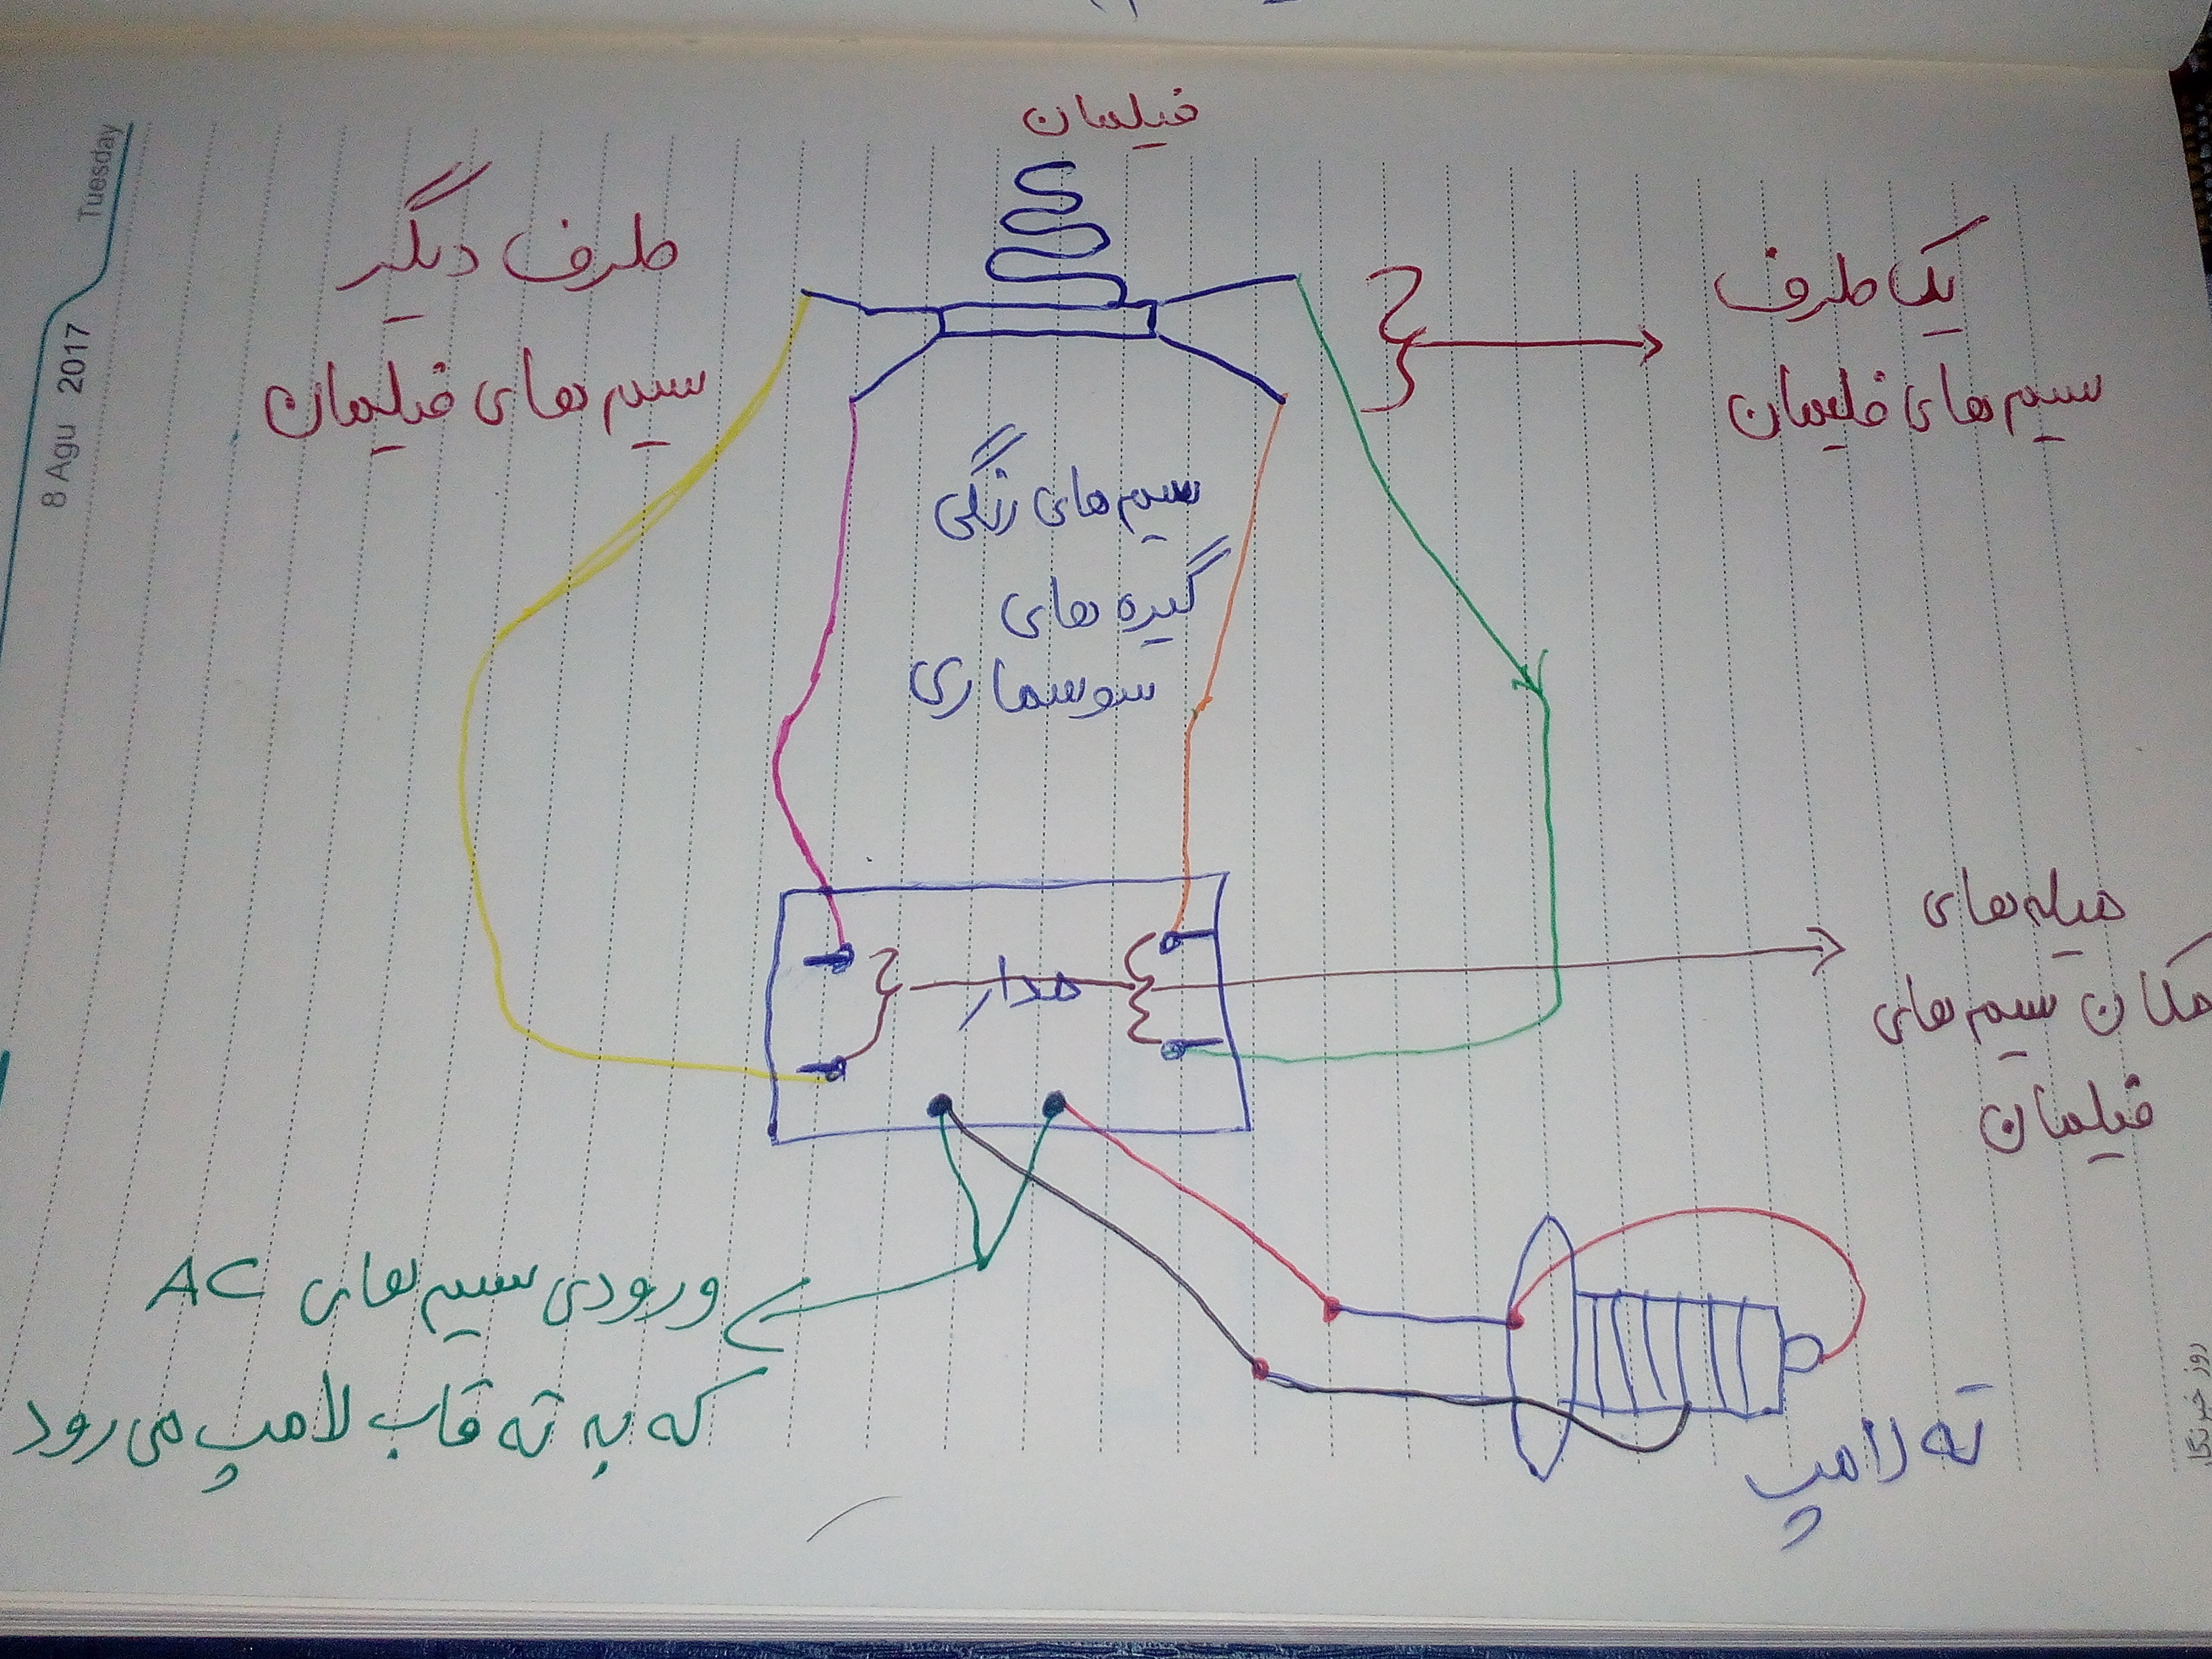 فیلمان
طرف دیگر
سیم های فیلمان
یک طرف
سیم های فلیمان
سیم های رنگی
گیره های
سوسماری
مدار
میله های
مکان سیم های
فیلمان
ورودی سیم های AC
که به ته قاب لامپ می رود
ته لامپ
8 Agu 2017 Tuesday